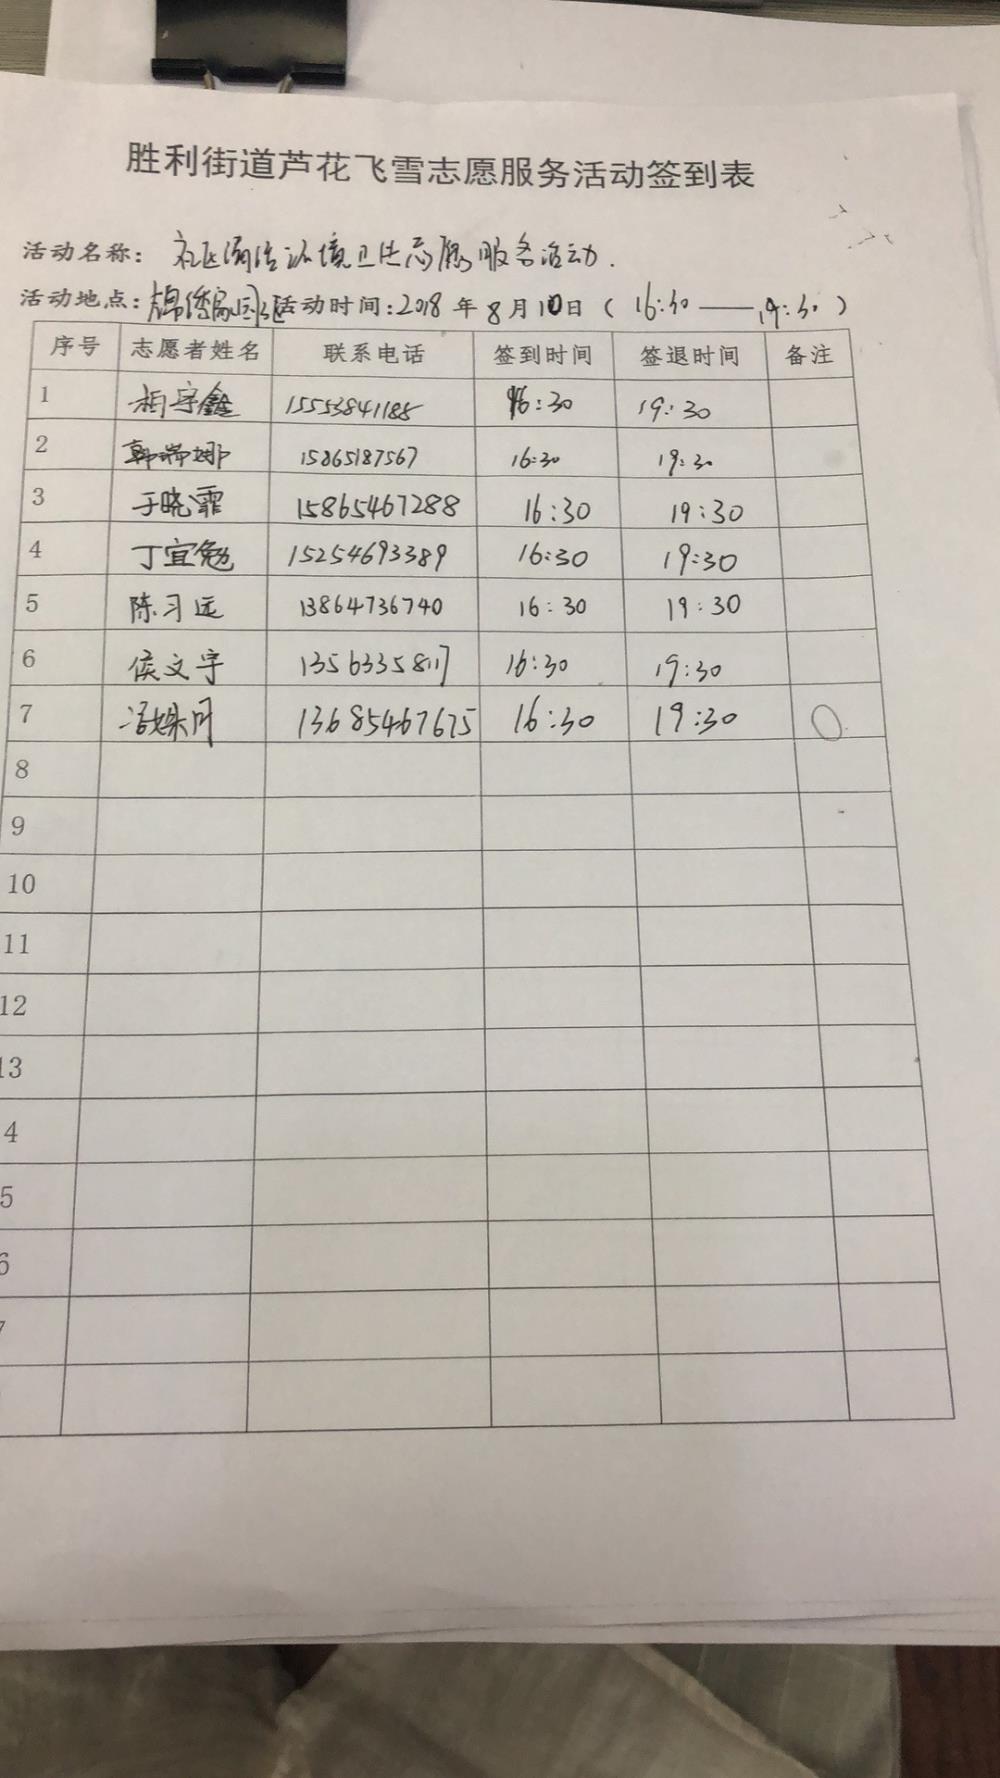 胜利街道芦花飞雪志愿服务活动签到表
活动名称： 社区清洁环境卫生志愿服务活动.
活动地点：锦绣家园小区 活动时间：2018 年 8 月 10 日 （ 16:30 —— 19:30 ）
序号 志愿者姓名 联系电话 签到时间 签退时间 备注
1 相宇鑫 15553841185 16:30 19:30
2 韩瑞娜 15865187567 16:30 19:30
3 于晓霏 15865467288 16:30 19:30
4 丁宜勉 15254693389 16:30 19:30
5 陈习远 13864736740 16:30 19:30
6 侯文宇 13563358117 16:30 19:30
7 13685467675 16:30 19:30
8
9
10
11
12
13
4
5
6
7